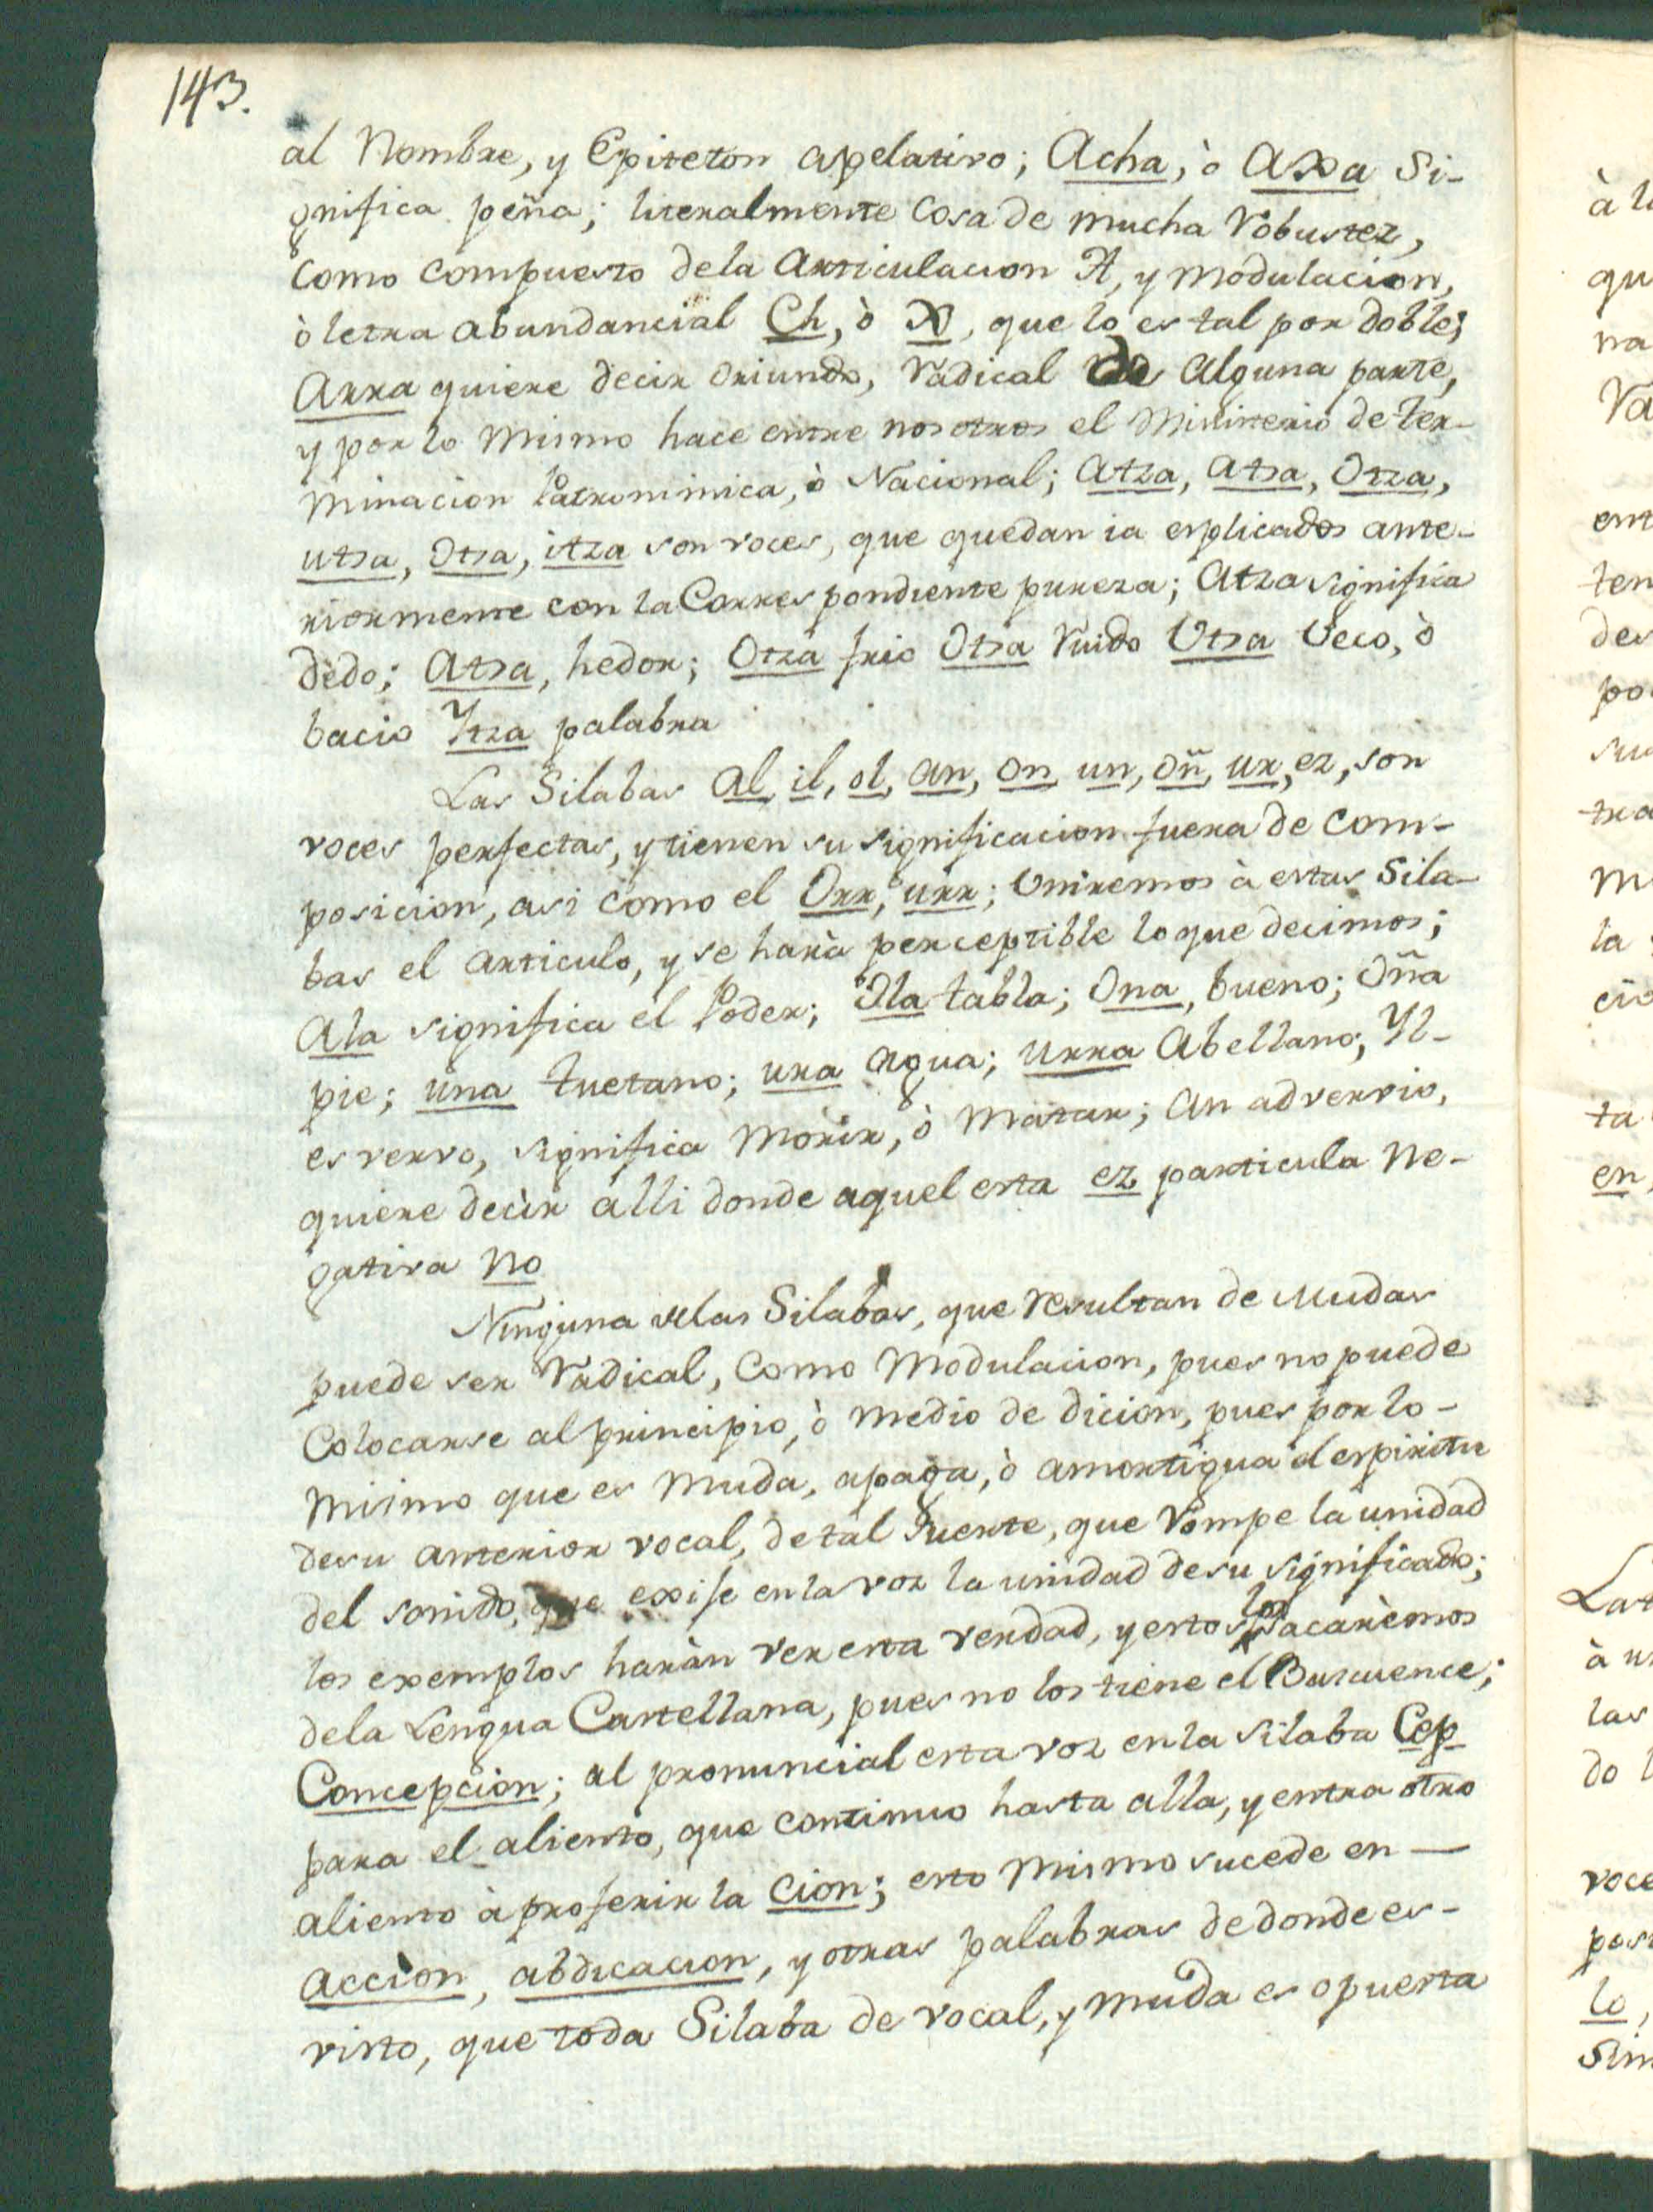 143.
al Nombre, y Epiteton apelativo; Acha, ò Axa Si-
gnifica peña; literalmente Cosa de mucha Robustez,
Como Compuesto dela Articulacion A, y Modulacion,
ò letra abundancial Ch, ò X, que lo es tal por doble;
Arra quiere decir Oriundo, Radical de Alguna parte,
y por lo Mismo hace entre nosotros el Ministerio de ter-
minacion Patronimica, ò Nacional; Atza, Atsa, Otza,
utsa, Otsa, itza son voces, que quedan ia esplicados ante-
riormente con la Correspondiente pureza; Atza significa
dedo; Atsa, hedor; Otza frio Otsa Ruido Utsa Ueco, ò
bacio Ytza palabra
Las Silabas Al, il, ol, an, on, un, oñ, ur, ez, son
voces perfectas, y tienen su significacion fuera de Com-
posicion, asi como el Orr, ò urr; Uniremos à estas Sila-
bas el articulo, y se harà perceptible lo que decimos;
Ala significa el Poder; Ola tabla; Ona, bueno; Oña
pie; una tuetano; ura agua; urra Abellano; Yl-
es vervo, significa Morir, ò Matar; An adverrio,
quiere decir alli donde aquel esta ez particula Ne-
gativa No
Ninguna delas Silabas, que resultan de Mudas
puede ser Radical, Como Modulacion, pues no puede
Colocarse al principio, ò medio de dicion, pues por lo-
mismo que es Muda, apaga, ò amortigua el espiritu
desu anterior vocal, de tal Suerte, que Rompe la unidad
del sonido, que exise en la voz la unidad desu significado;
los exemplos haràn ver esta verdad, y estos los sacarèmos
dela Lengua Castellana, pues no los tiene el Bascuence;
Concepcion; al pronuncial esta voz en la silaba Cep
para el aliento, que continuo hasta alla, y entra otro
aliento à proferir la Cion; esto Mismo sucede en —
accion, abdicacion, y otras palabras de donde es-
visto, que toda Silaba de vocal, y muda es opuesta
à l
qu
na
Ra
ent
ten
des
po
su
tra
M
la
cio
ta
en,
Lat
à u
las
do l
voce
pos
lo,
Sim